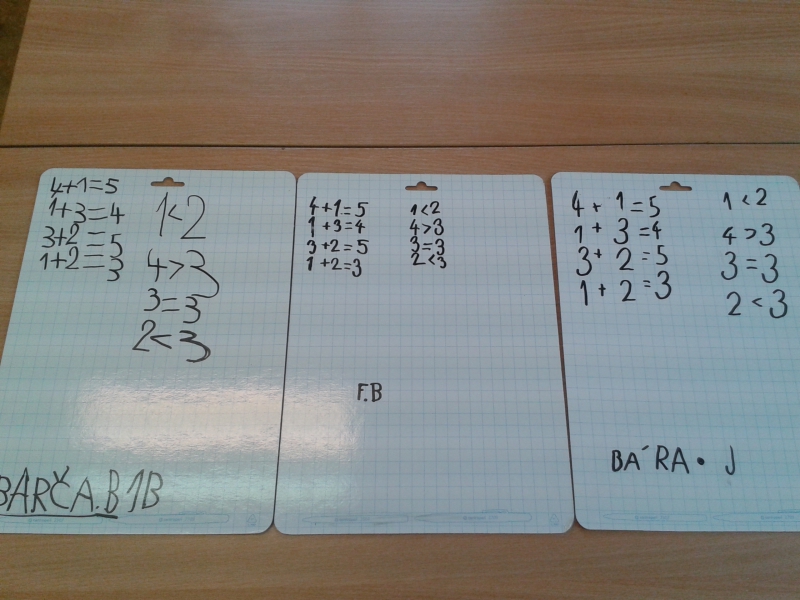 4+1=5
1+3=4
3+2=5
1+2=3
1<2
4>3
3=3
2<3
BARČA.B 1B
4+1=5
1+3=4
3+2=5
1+2=3
1<2
4>3
3=3
2<3
F.B
4+1=5
1+3=4
3+2=5
1+2=3
1<2
4>3
3=3
2<3
BÁRA. J